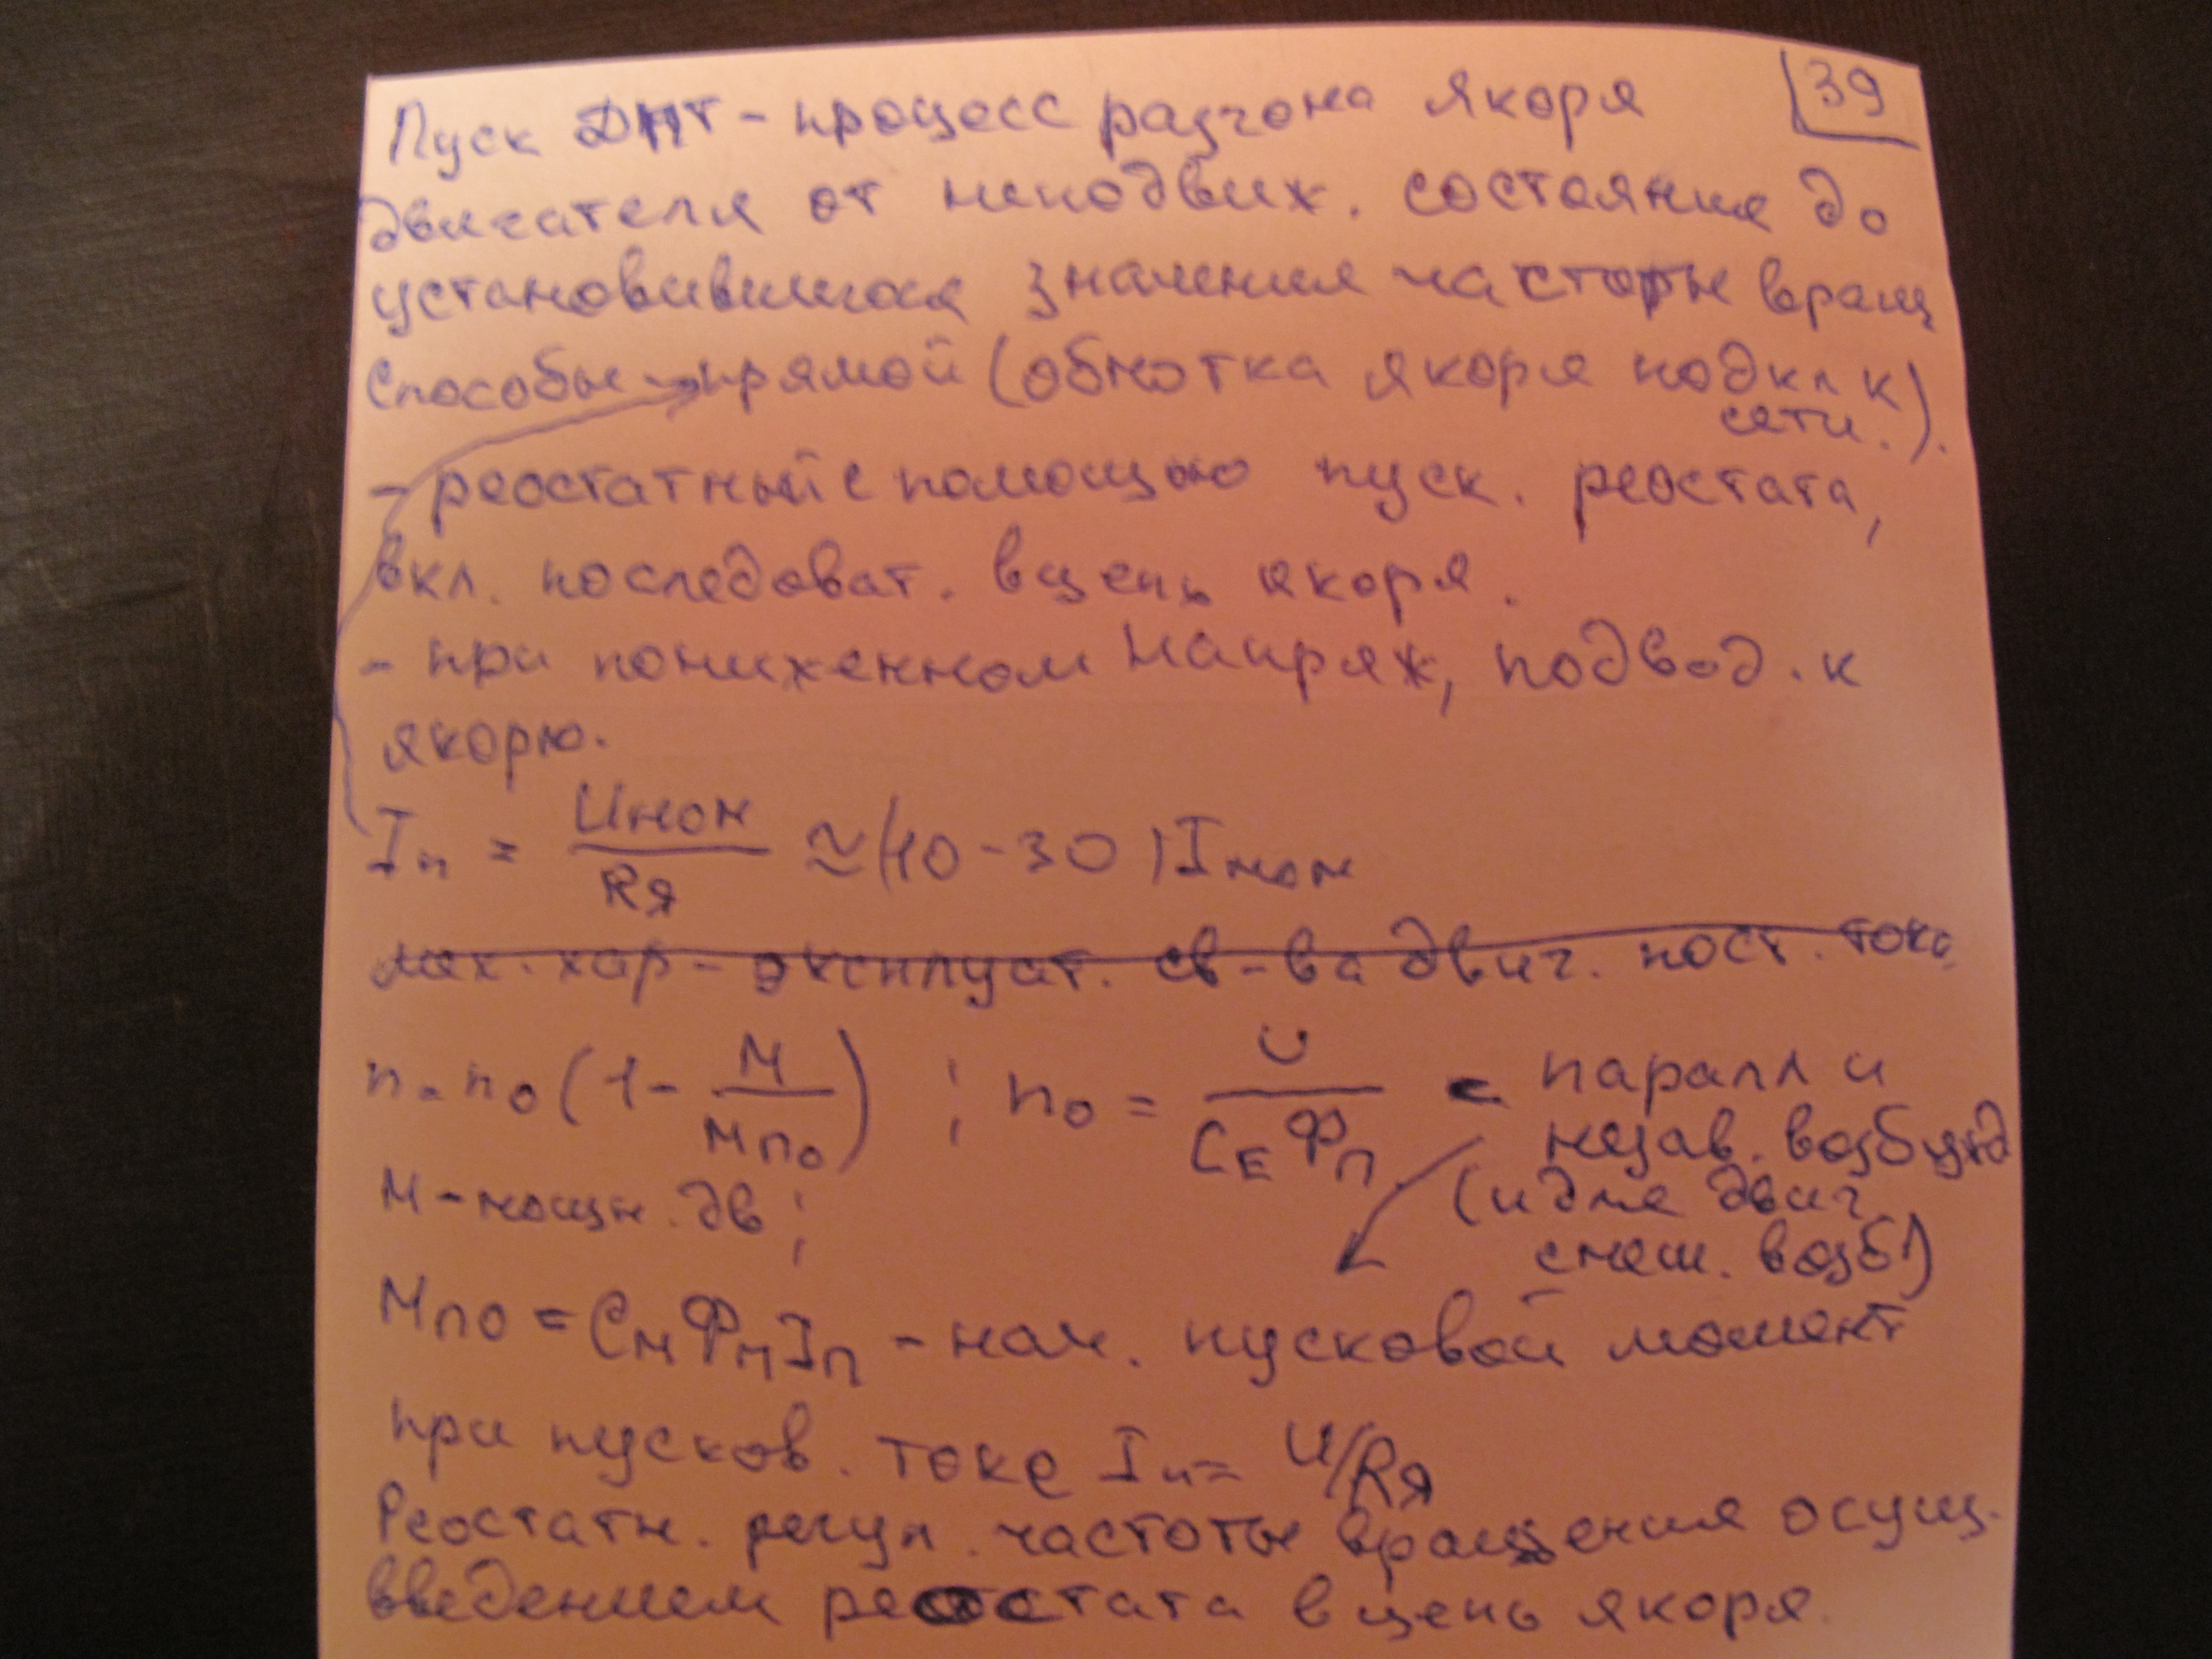 39
Пуск ДПТ - процесс разгона якоря
двигателя от неподвиж. состояния до
установившигося значения частоты вращ
Способы - прямой (обмотка якоря подкл к
сети.).
- реостатный с помощью пуск. реостата,
вкл. последоват. в цепь якоря.
- при пониженном напряж, подвод. к
якорю.
Iп = Uном/Rя ≈ (10-30) Iном
мех. хар - эксплуат. св-ва двиг. пост. тока
n = n0 (1 - M/Mп0) ; n0 = U/(CE Фп) - паралл и
незав. возбужд
(и для двиг
смеш. возб)
М - мощн. дв;
Mп0 = CM Фп Iп - нач. пусковой момент
при пусков. токе Iп = U/Rя
Реостатн. регул. частоты вращения осущ.
введением реостата в цепь якоря.